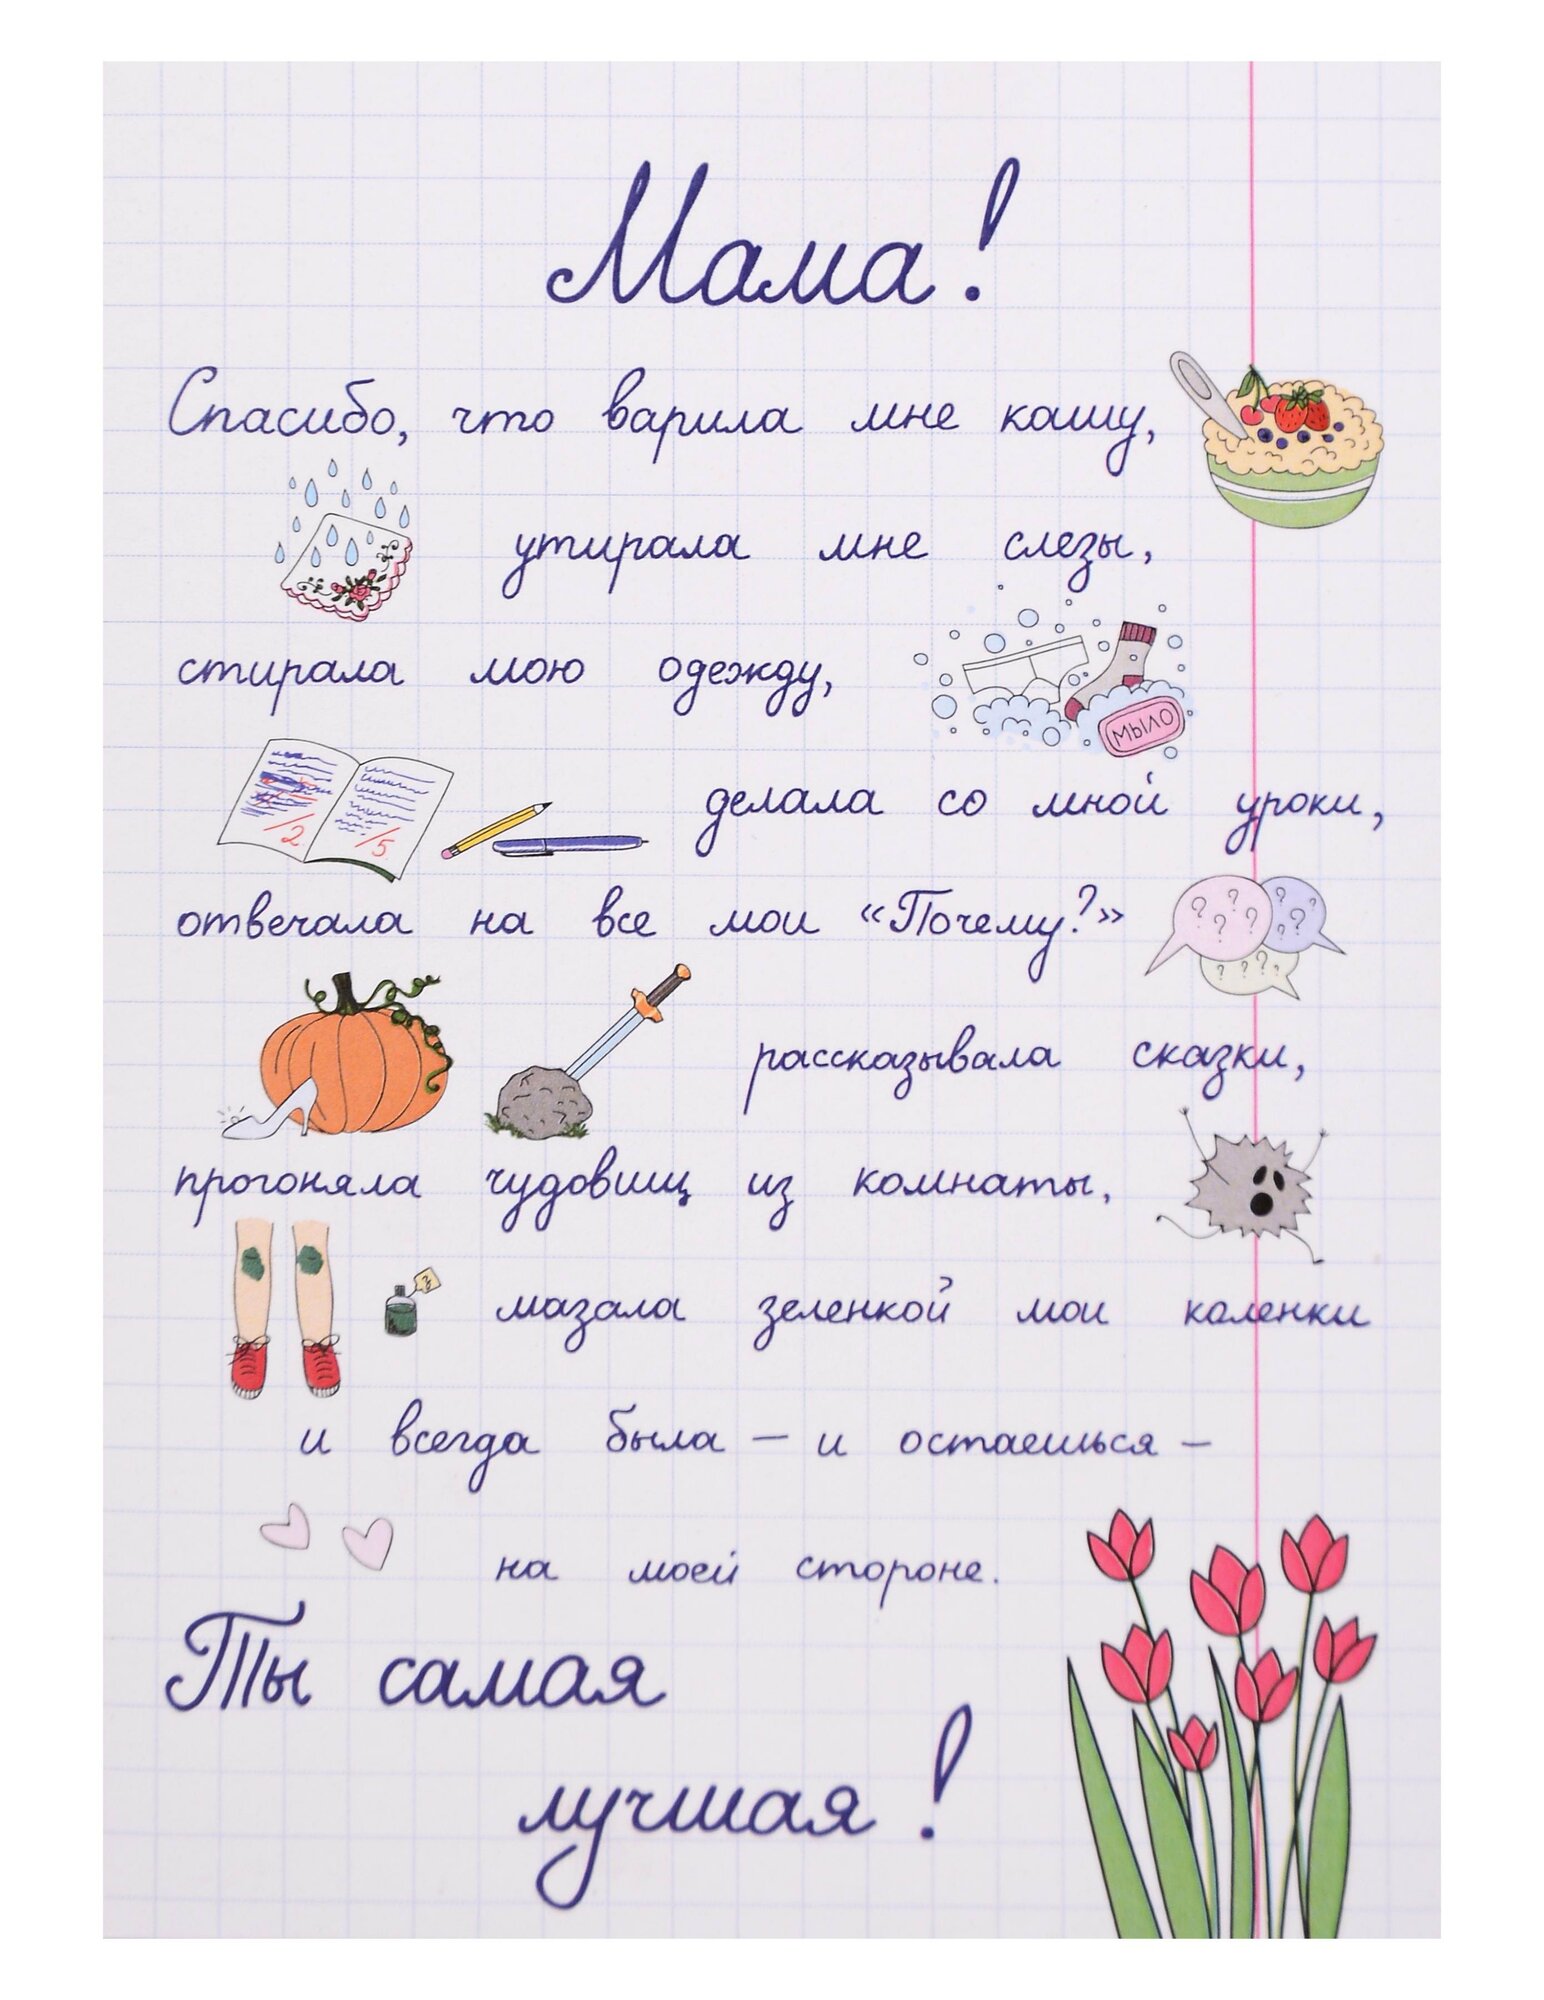 Мама!
Спасибо, что варила мне кашу,
утирала мне слезы,
стирала мою одежду,
МЫЛО
делала со мной уроки,
/2
/5
отвечала на все мои «Почему?»
? ? ? ? ? ? ? ? ? ? ?
рассказывала сказки,
прогоняла чудовищ из комнаты,
З
мазала зеленкой мои коленки
и всегда была – и остаешься –
на моей стороне.
Ты самая
лучшая!